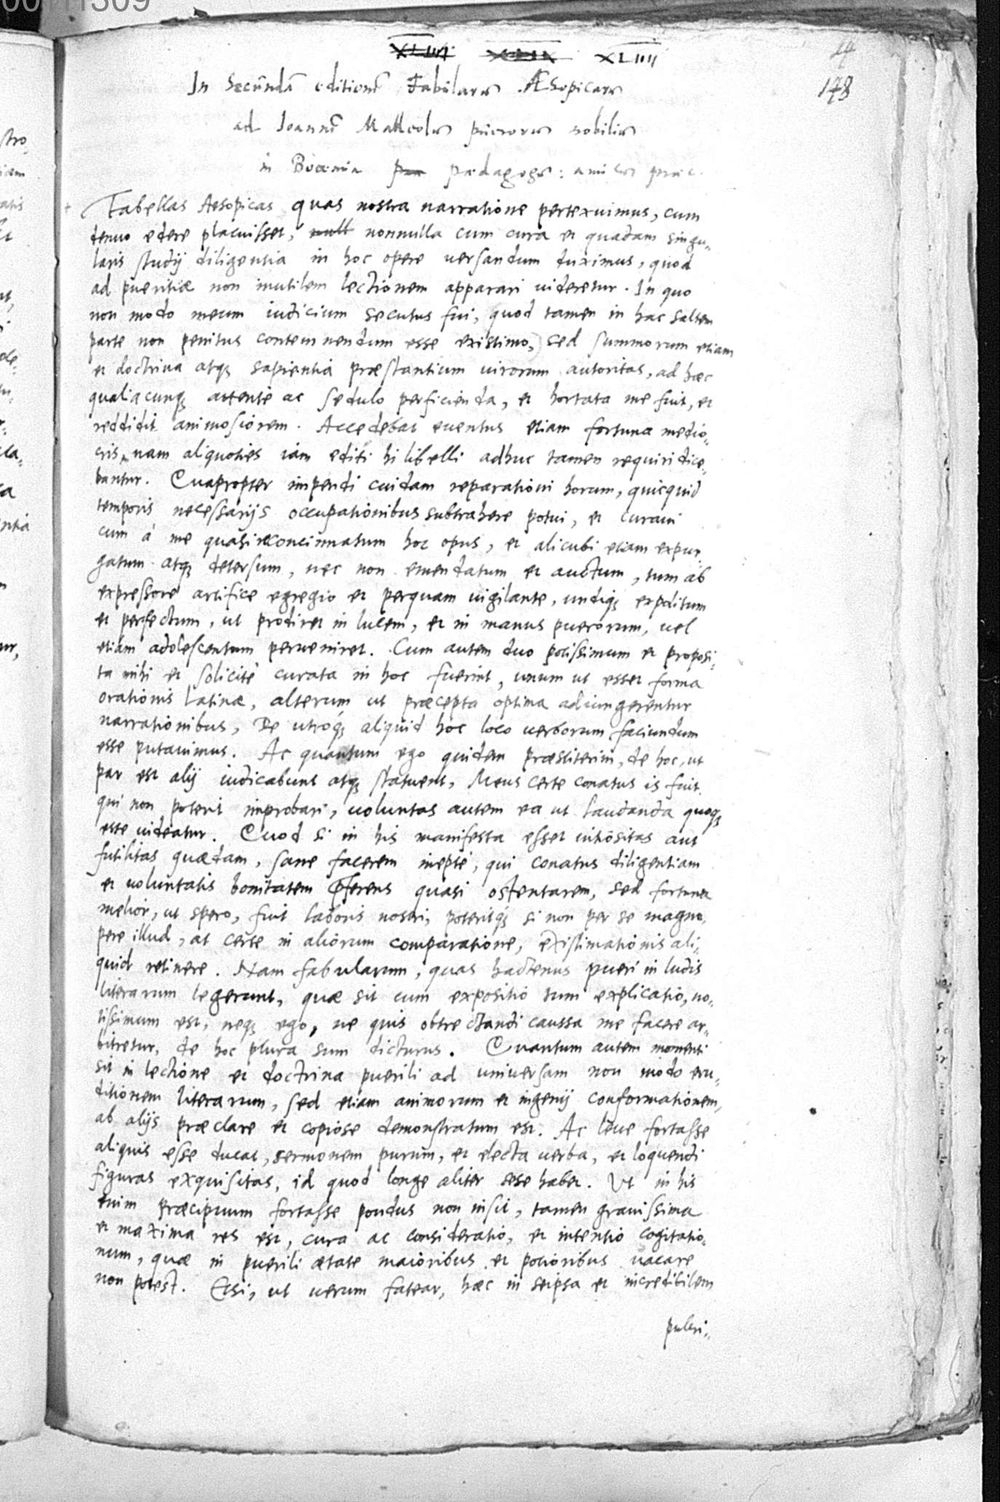 XLIIII
44
148
In Secundã editionẽ Fabularũ Æsopicarũ
ad Joannẽ Malleolũ puerorũ nobiliũ
in Boemia pædagogũ: amicũ præc.
Fabellas Aesopicas quas nostra narratione pertexuimus, cum
denuo edere placuisset, nonnulla cum cura et quadam singu-
laris studij diligentia in hoc opere versandum duximus, quod
ad pueritiæ non inutilem lectionem apparari uideretur. In quo
non modo meum iudicium secutus fui, quod tamen in hac saltem
parte non penitus contemnendum esse existimo, sed summorum etiam
et doctrina atq; sapientia præstantium uirorum autoritas, ad hæc
qualiacunq; attente ac sedulo perficienda, et hortata me fuit, et
reddidit animosiorem. Accedebat euentus etiam fortuna medio-
cris, nam aliquoties iam editi hi libelli adhuc tamen requiri dice-
bantur. Quapropter impendi cuidam reparationi horum, quicquid
temporis necessarijs occupationibus subtrahere potui, et curaui
cum á me quasi reconcinnatum hoc opus, et alicubi etiam expur-
gatum atq; detersum, nec non emendatum et auctum, tum ab
expressore artifice egregio et perquam uigilante, undiq; expolitum
et perfectum, ut prodiret in lucem, et in manus puerorum, uel
etiam adolescentum perueniret. Cum autem duo potissimum et proposi-
ta mihi et solicitè curata in hoc fuerint, unum ut esset forma
orationis latinæ, alterum ut præcepta optima adiungerentur
narrationibus, De utroq; aliquid hoc loco uerborum faciundum
esse putauimus. Ac quantum ego quidem præstiterim, de hoc, ut
par est alij iudicabunt atq; statuent, Meus certe conatus is fuit
qui non poterit improbari, uoluntas autem ea ut laudanda quoq;
esse uideatur. Quod si in his manifesta esset uitiositas aut
futilitas quædam, sane facerem ineptè, qui conatus diligentiam
et uoluntatis bonitatem pferens quasi ostentarem, sed fortuna
melior, ut spero, fuit laboris nostri, poteritq; si non per se magno-
pere illud, at certe in aliorum comparatione, existimationis ali-
quid retinere. Nam fabularum, quas hactenus pueri in ludis
literarum legerunt, quæ sit cum expositio tum explicatio, no-
tissimum est, neq; ego, ne quis obtrectandi caussa me facere ar-
bitretur, de hoc plura sum dicturus. Quantum autem momenti
sit in lectione et doctrina puerili ad uniuersam non modo eru-
ditionem literarum, sed etiam animorum et ingenij conformationem,
ab alijs præclare et copiose demonstratum est. Ac leue fortasse
aliquis esse ducat, sermonem purum, et electa uerba, et loquendi
figuras exquisitas, id quod longe aliter sese habet. Ut in his
enim præcipuum fortasse pondus non insit, tamen grauissima
et maxima res est, cura ac consideratio, et intentio cogitatio-
num, quæ in puerili ætate maioribus et potioribus uacare
non potest. Etsi, ut uerum fatear, hæc in seipsa et incredibilem
pulcri-